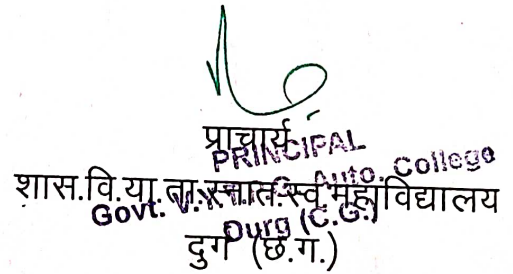 प्राचार्य
PRINCIPAL
शास.वि.या.ता.स्नात.स्व.महाविद्यालय
Govt. V.Y.T. Auto. College
दुर्ग (छ.ग.)
Durg (C.G.)